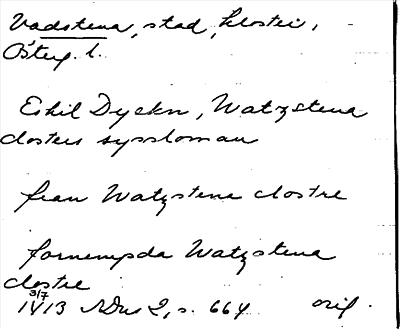 Vadstena, stad, kloster,
Österg. l.
Eskil Dyckn, Watzstena
closters syssloman
fran Watzstena clostre
fornempda Watzstena
clostre
3/7
1513 NDns 2, s. 664 orig.